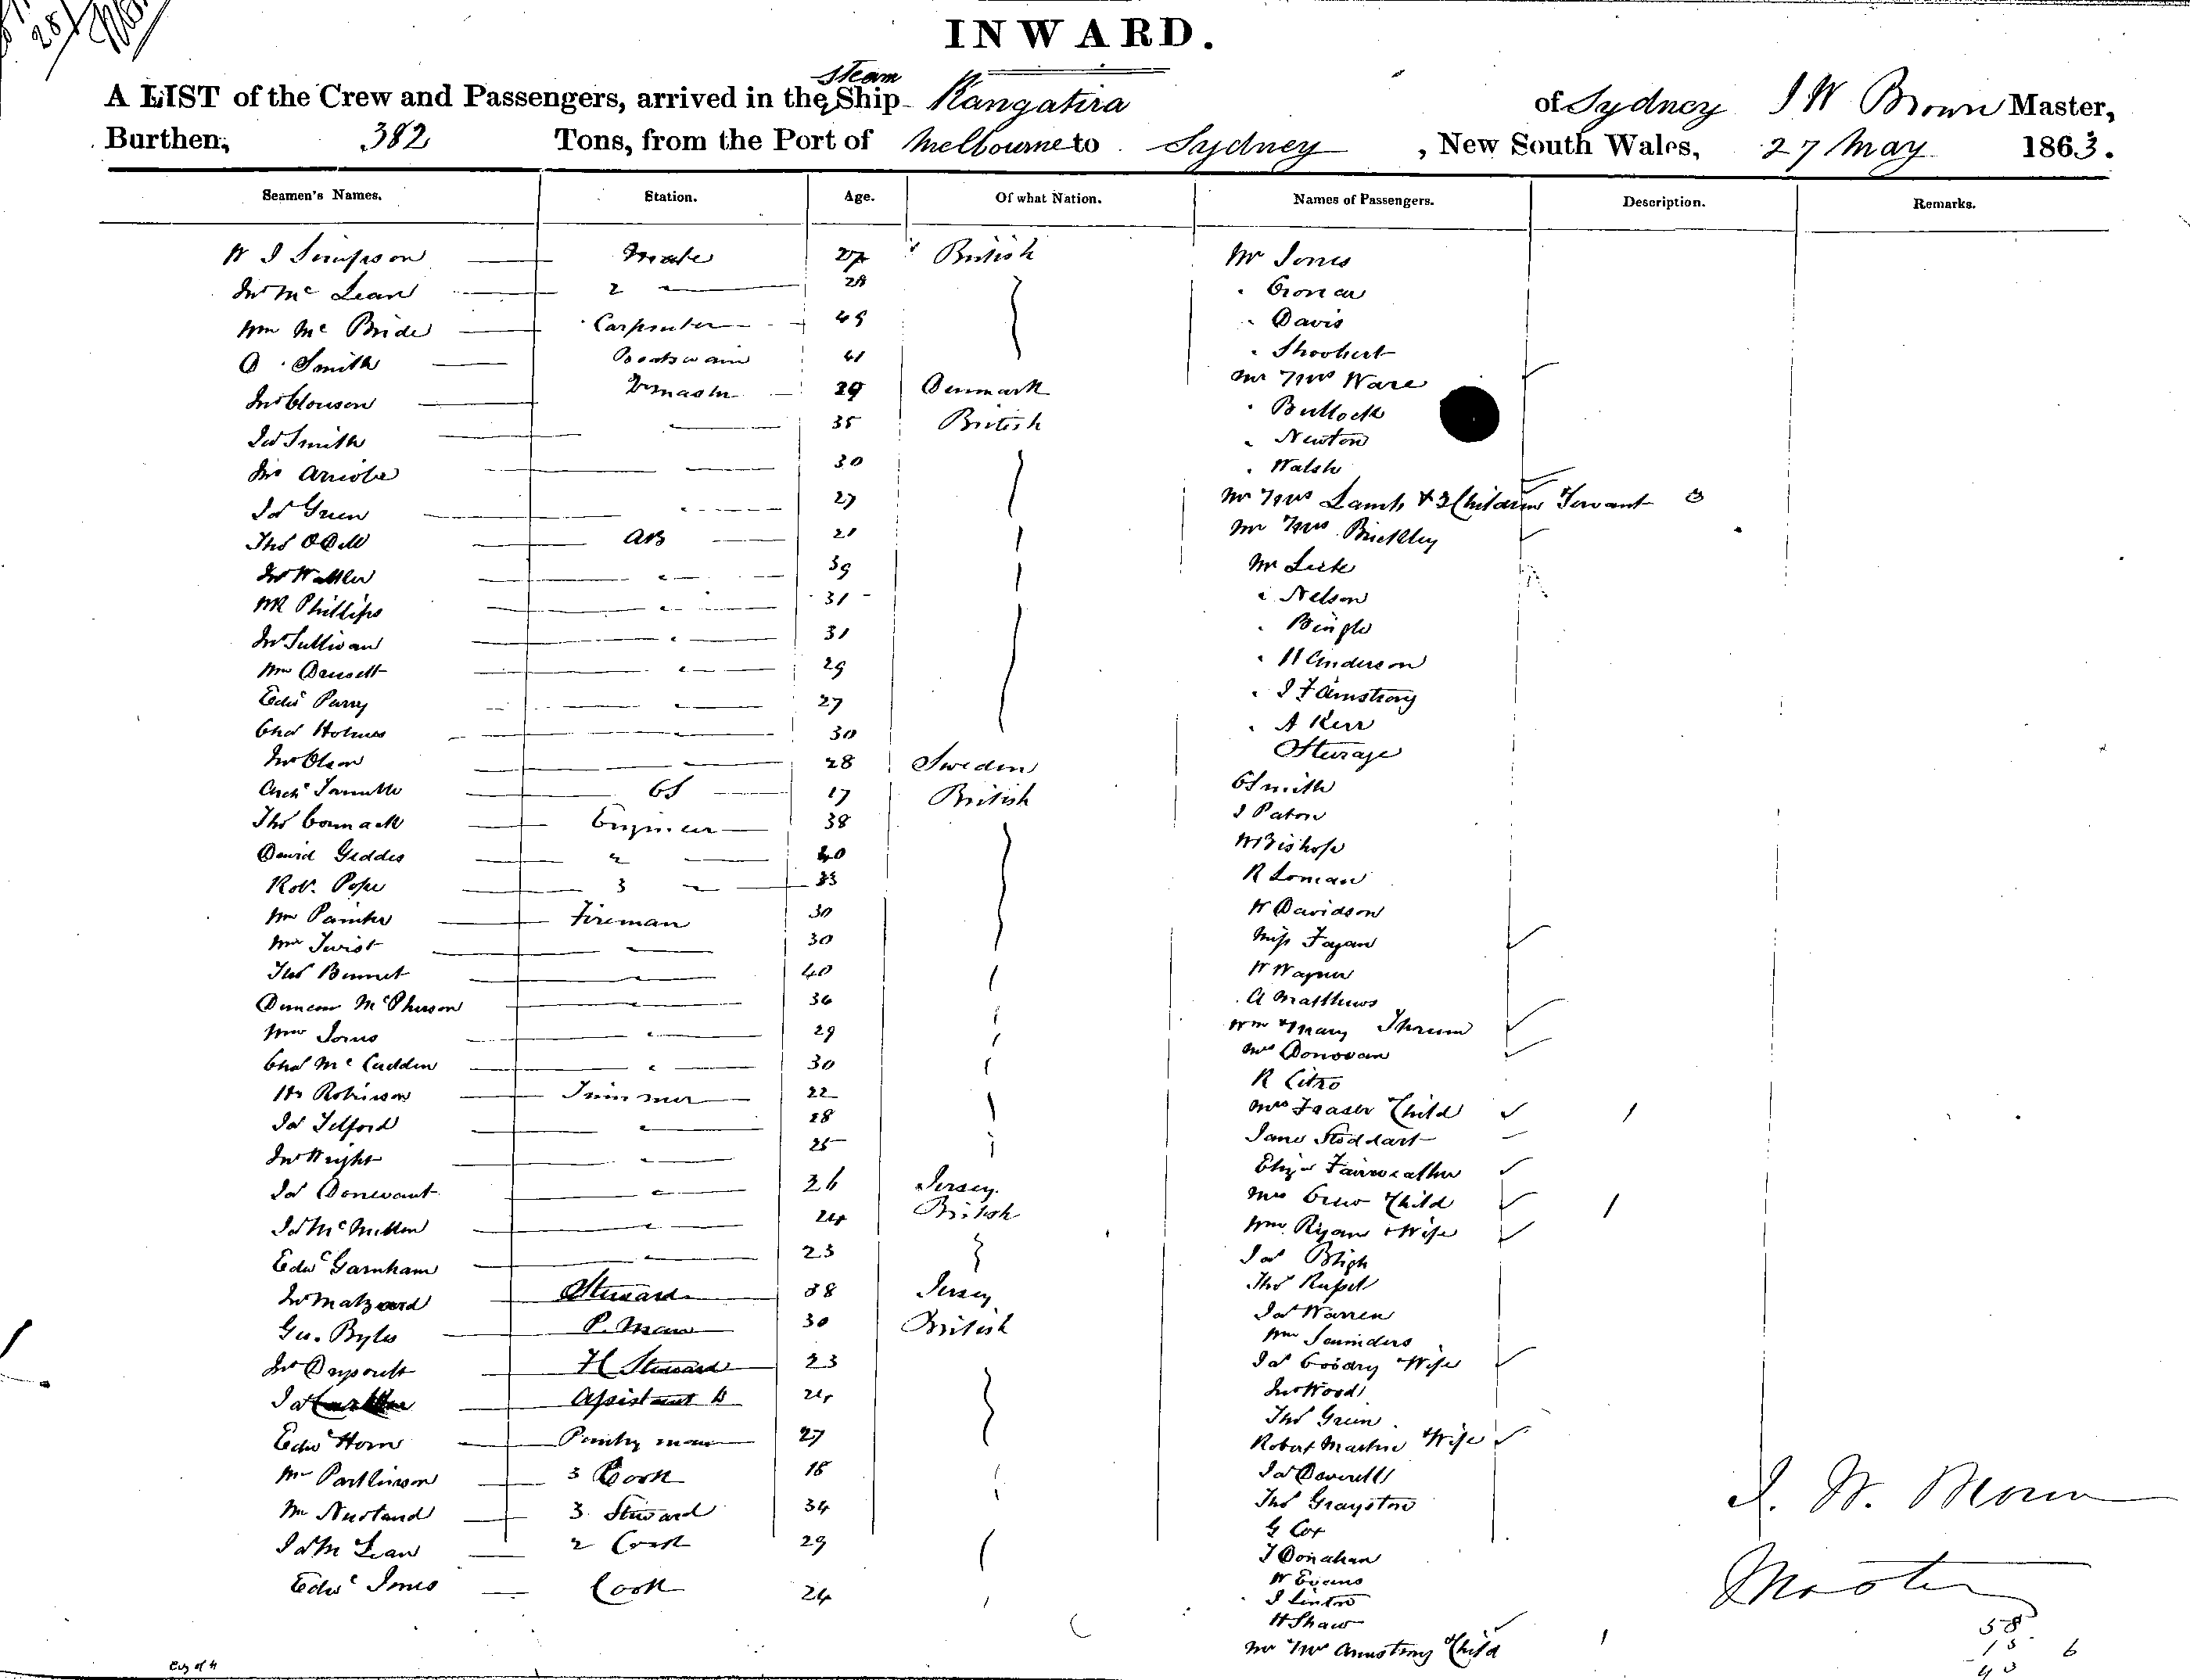 INWARD.
A LIST of the Crew and Passengers, arrived in the Steam Ship Rangatira of Sydney J W Brown Master,
Burthen, 382 Tons, from the Port of Melbourne to Sydney, New South Wales, 27 May 1863.
Seamen's Names. Station. Age. Of what Nation. Names of Passengers. Description. Remarks.
W J Simpson Mate 27 British Mr Jones
Jno Mc Lean 2 28
Wm Mc Bride Carpenter 49 " Davis
D Smith Boatswain 41
Jno Clouson 29 Denmark Mr & Mrs Ware
Jas Smith 35 British " Bullock
" Newton
Jno 30 " Walsh
Jas Green 27 Mr & Mrs Lamb & 3 Children Servant 3
Thos AB 21 Mr & Mrs Brickley
Jno " 39 Mr
W R Phillips " 31 " Nelson
Jno Sullivan " 31 "
Wm " 29 " H Anderson
Edwd Parry " 27 " J F Armstrong
Chas Holmes " 30 " A Kerr
Jno Olsen " 28 Sweden Steerage
Archd OS 17 British G Smith
Thos Cormack Engineer 38 J Paton
David Geddes 2 " 40 W Bishop
Robt. Pope 3 " 33 R Loman
Wm Painter Fireman 30 W Davidson
Wm Twist " 30 Miss Fagan
Thos Bennet " 40 W Wagner
Duncan McPherson " 36 A Matthews
Wm Jones " 29 Wm & Mary Thrum
Chas McCadden " 30 Mrs Donovan
Hy Robinson Trimmer 22 R Citro
Jas Telford " 28 Mrs Fraser & Child 1
Jno Wright " 25 Jane Stoddart
Jas Donevant " 26 Jersey Eliza Fairweather
Jas McMillan " 24 British Mrs Crew & Child 1
Wm Ryan & Wife
Edwd Garnham " 23 Jas Bligh
Thos Russel
Jno Steward 38 Jersey Jas Warren
Geo. Byles P. Man 30 British Wm Saunders
Jno F C Steward 23 Jas & Wife
Jas Assistant 24 Jno Wood
Thos Green
Edwd Horn Pantry man 27 Robert Martin & Wife
Wm Partlinson 3 Cook 18 Jas Deverell
Wm 3 Steward 34 Thos Grayston
G Cox
Jas Mc Lean 2 Cook 29 T Donahan
Edwd Jones Cook 24 W Evans
J Linton
H Shaw
Mr & Mrs Armstrong & Child 1
J. W. Brown
Master
58
15 6